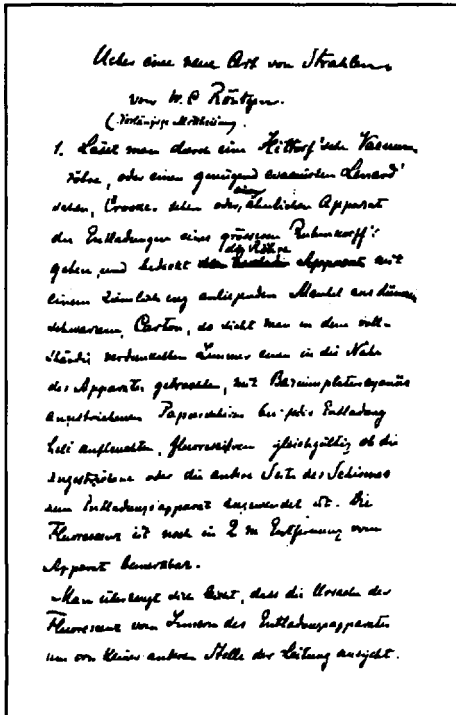 Ueber eine neue Art von Strahlen.
von W. C. Röntgen.
(Vorläufige Mittheilung.
1. Lässt man durch eine Hittorf'sche Vacuum
röhre, oder einen genügend evacuirten Lenard'
schen, Crookes'schen oder einen ähnlichen Apparat
die Entladungen eines grösseren Ruhmkorff's
gehen, und bedeckt die Röhre mit
einem ziemlich eng anliegenden Mantel aus dünnem
schwarzem Carton, so sieht man in dem voll-
ständig verdunkelten Zimmer einen in die Nähe
des Apparates gebrachten, mit Bariumplatincyanür
angestrichenen Papierschirm bei jeder Entladung
hell aufleuchten, fluoresciren, gleichgültig ob die
angestrichene oder die andere Seite des Schirmes
dem Entladungsapparat zugewendet ist. Die
Fluorescenz ist noch in 2 m Entfernung vom
Apparat bemerkbar.
Man überzeugt sich leicht, dass die Ursache der
Fluorescenz vom Innern des Entladungsapparates
und von keiner anderen Stelle der Leitung ausgeht.